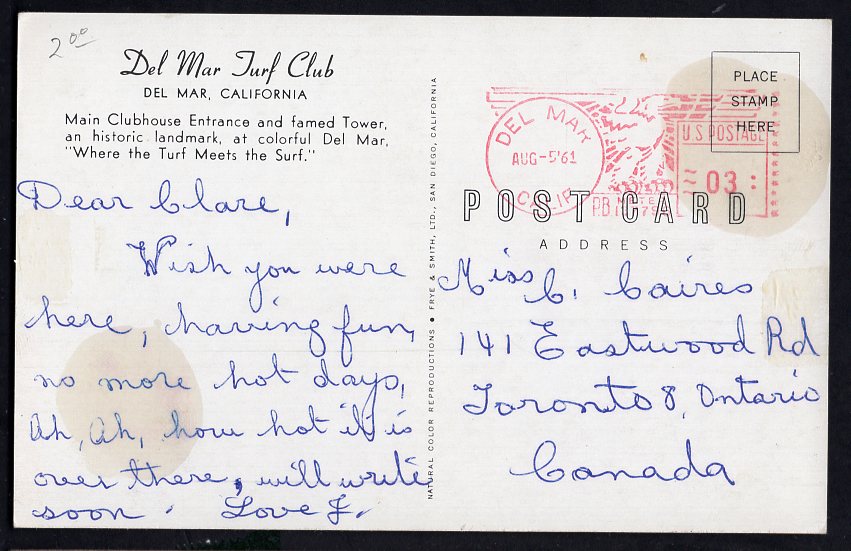 2 00
Del Mar Turf Club
DEL MAR, CALIFORNIA
Main Clubhouse Entrance and famed Tower,
an historic landmark, at colorful Del Mar,
"Where the Turf Meets the Surf."
Dear Clare,
Wish you were
here, having fun,
no more hot days,
Ah, Ah, how hot it is
over there, will write
soon. Love F.
NATURAL COLOR REPRODUCTIONS • FRYE & SMITH, LTD., SAN DIEGO, CALIFORNIA
DEL MAR
AUG-5'61
CALIF
P.B.
METER
U.S. POSTAGE
03
PLACE
STAMP
HERE
POST CARD
ADDRESS
Miss C. Caires
141 Eastwood Rd
Toronto 8, Ontario
Canada